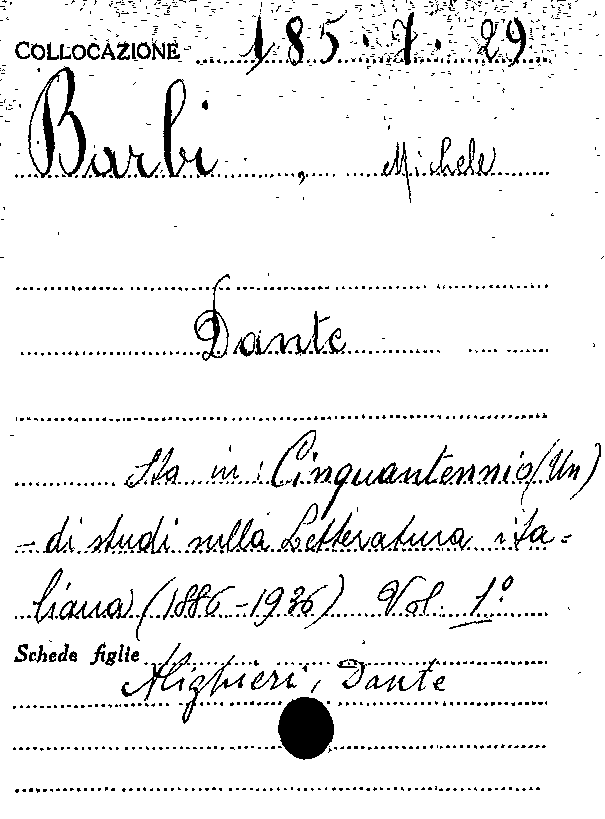 COLLOCAZIONE 185.7.29
Barbi, Michele
Dante
Sta in: Cinquantennio (Un)
- di studi sulla Letteratura ita=
liana (1886-1936) Vol. 1º
Schede figlie
Alighieri, Dante